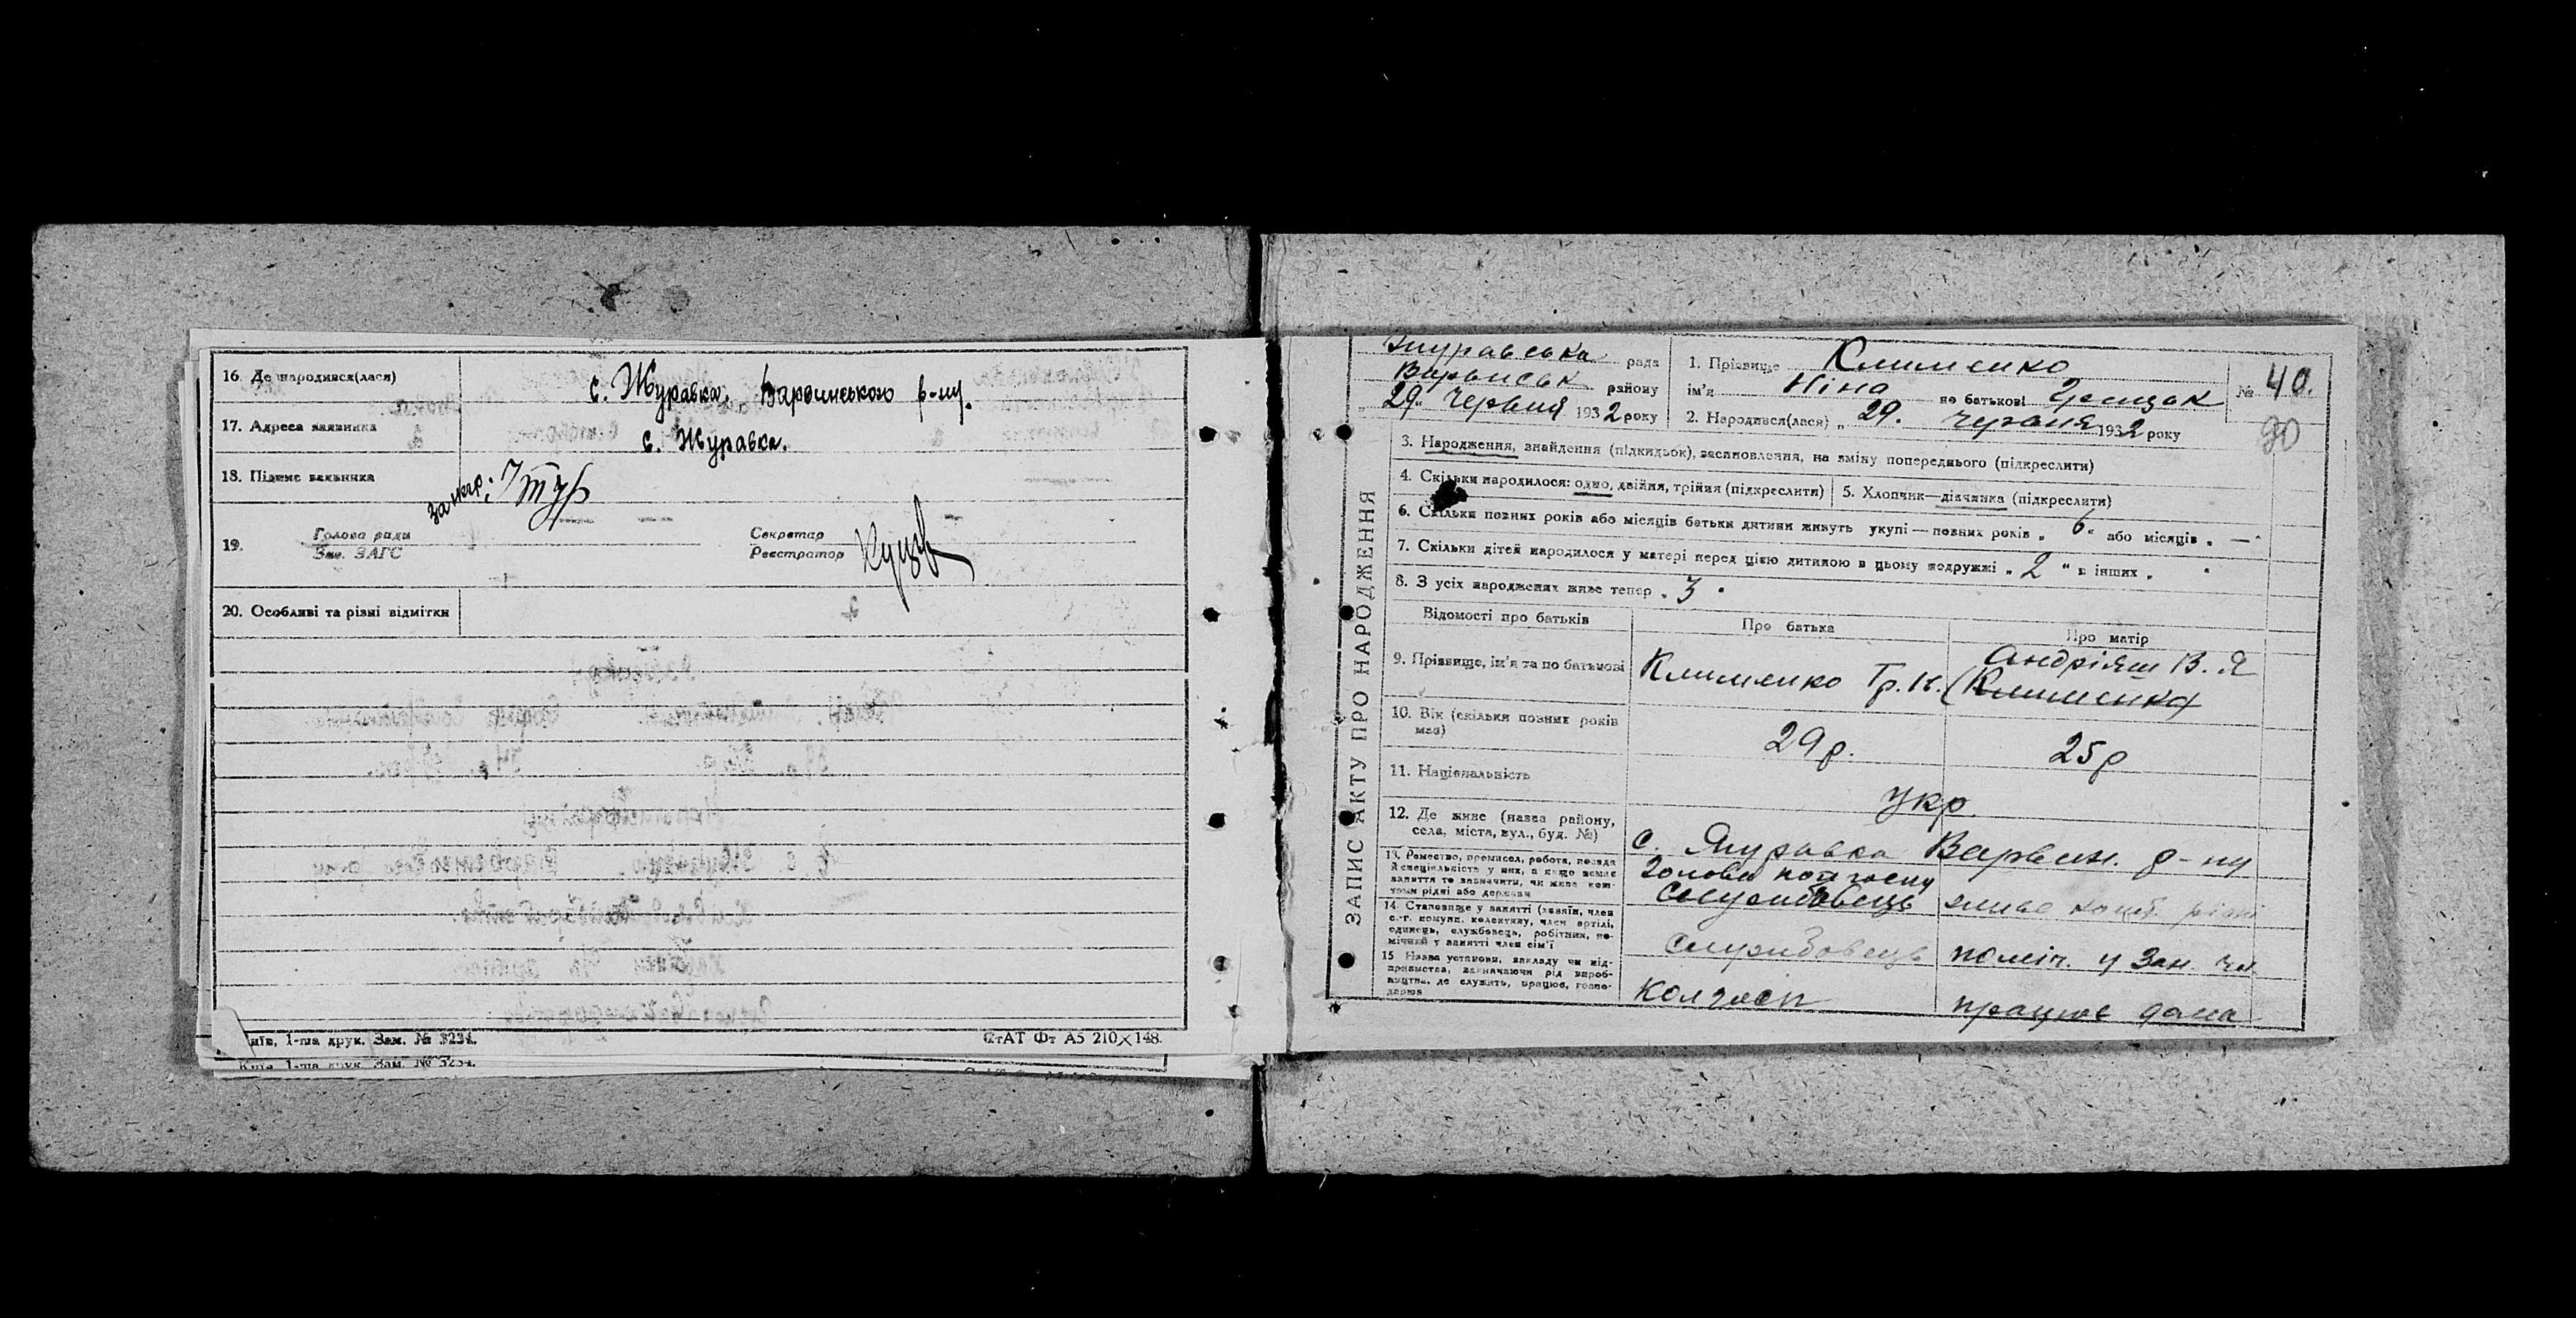 16. Де народився(лася)
с. Журавка, Варвинського р-ну.
17. Адреса заявника
с. Журавка.
18. Підпис заявника
19. Голова ради
Зав. ЗАГС
Секретар
Реєстратор
20. Особливі та різні відмітки
Київ, 1-ша друк. Зам. № 3234.
СтАТ Фт А5 210×148.
Київ, 1-ша друк. Зам. № 3234.
ЗАПИС АКТУ ПРО НАРОДЖЕННЯ
Журавська рада
Варвинськ району
„29“ Червня 1932 року
1. Прізвище Клименко
ім'я Ніна по батькові
2. Народився(лася) „29. червня 1932 року
№ 40.
90
3. Народження, знайдення (підкидьок), всиновлення, на зміну попереднього (підкреслити)
4. Скільки народилося: одно, двійня, трійня (підкреслити)
5. Хлопчик—дівчинка (підкреслити)
6. Скільки повних років або місяців батьки дитини живуть укупі — повних років „6“ або місяців „—“
7. Скільки дітей народилося у матері перед цією дитиною в цьому подружжі „2“ в інших „ “
8. З усіх народжених живе тепер „3“
Відомості про батьків
Про батька
Про матір
9. Прізвище, ім'я та по батькові
Клименко Гр. К.
Андріяш В. Я
(Клименко)
10. Вік (скільки повних років має)
29 р.
25 р
11. Національність
Укр.
12. Де живе (назва району,
села, міста, вул., буд. №)
с. Журавка Варвин. р-ну
13. Ремество, промисел, робота, посада
й спеціяльність у них, а якщо немає
заняття то зазначити, чи живе коштом рідні або держави
голова колгоспу
службовець
живе кошт. рідні
14. Становище у занятті (хазяїн, член
с.-г. комуни, колективу, член артілі,
одинець, службовець, робітник, помічний у занятті член сім'ї
службовець
поміч. у зан. чл.
15. Назва установи, закладу чи підприємства, зазначаючи рід виробництва, де служить, працює, господарює
Колгосп
працює дома